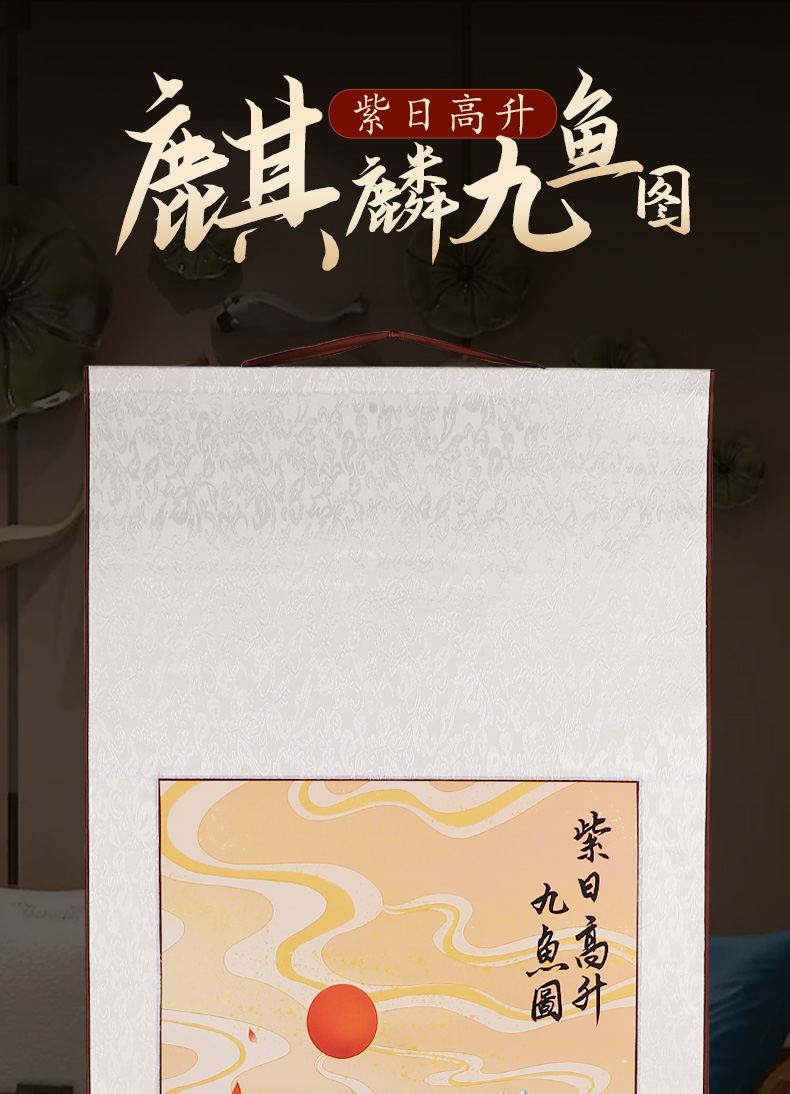 紫日高升
麒麟九鱼图
紫日高升
九魚圖